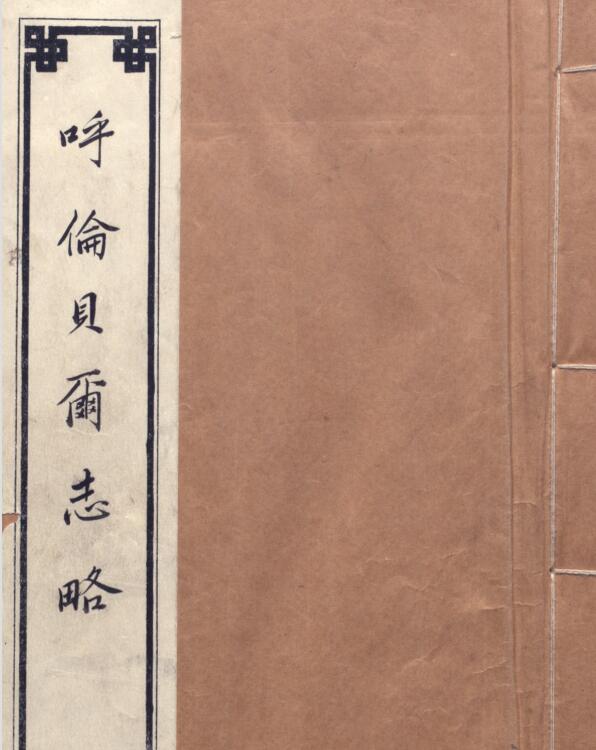 呼倫貝爾志略